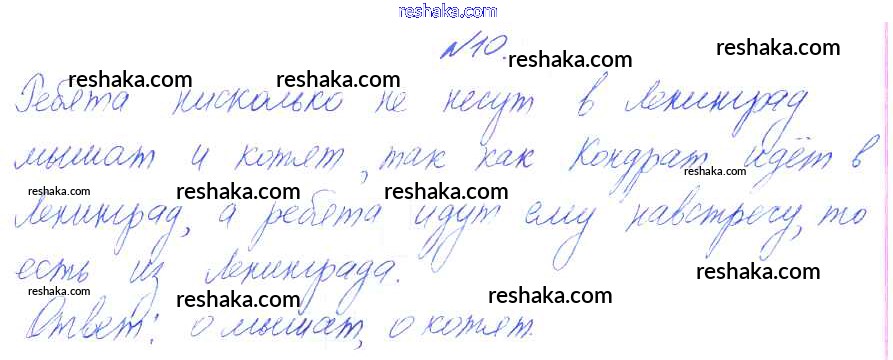 reshaka.com
№10.
reshaka.com
reshaka.com
reshaka.com
reshaka.com
Ребята нисколько не несут в Ленинград
мышат и котят, так как Кондрат идёт в
reshaka.com
reshaka.com
reshaka.com
reshaka.com
Ленинград, а ребята идут ему навстречу, то
есть из Ленинграда.
reshaka.com
reshaka.com
reshaka.com
reshaka.com
Ответ: 0 мышат, 0 котят.